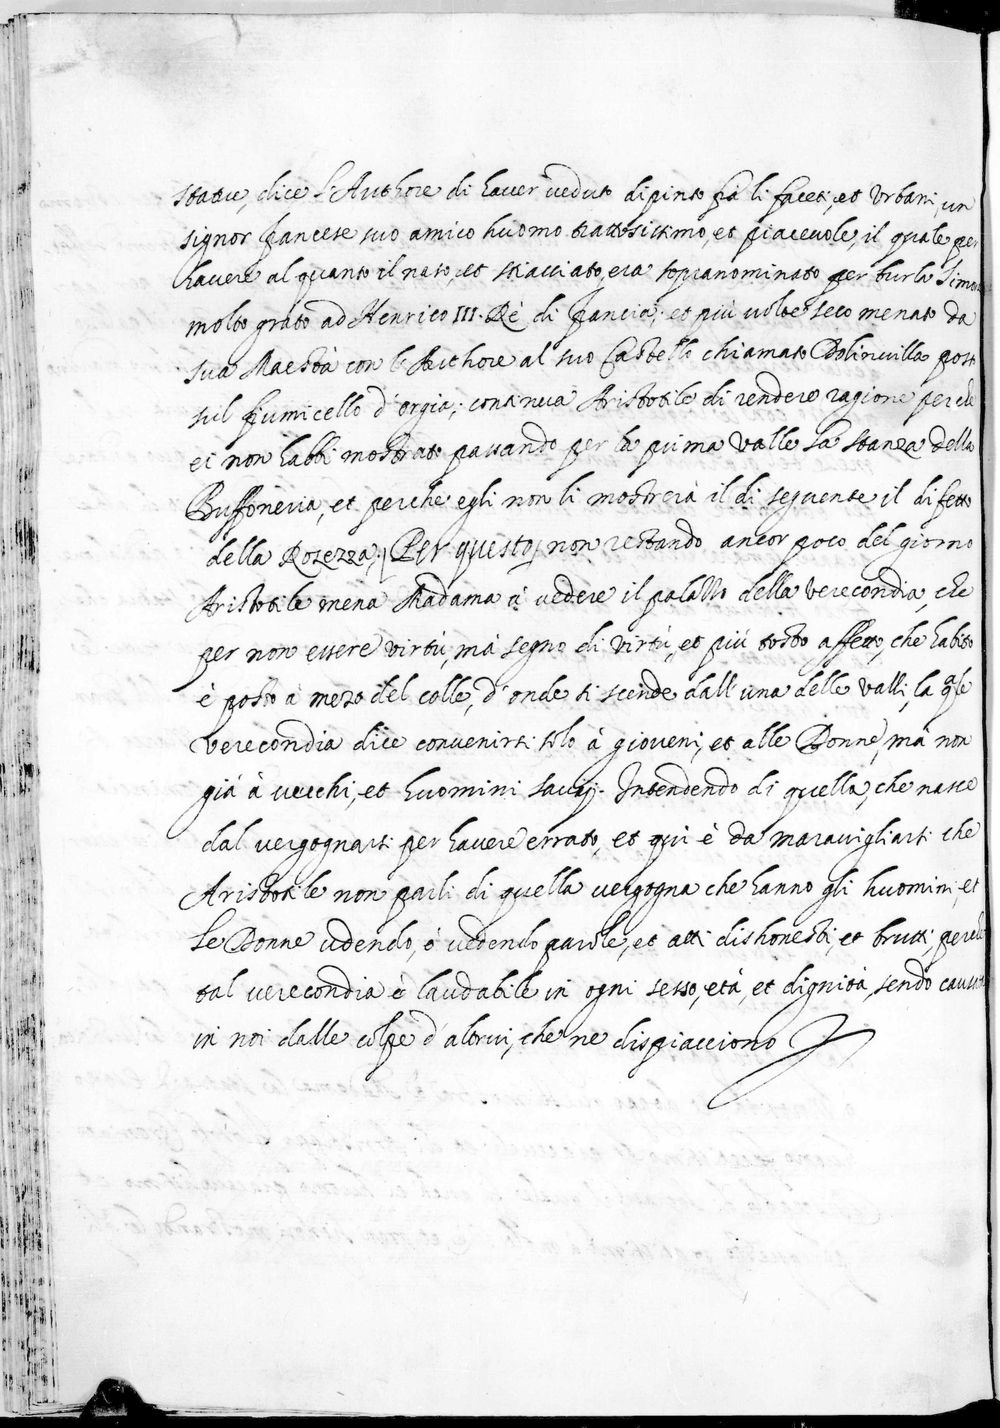 statue, dice l'Authore di haver veduto dipinto frà li faceti, et Urbani, un
signor francese suo amico huomo trattosissimo, et piacevole, il quale per
havere al quanto il naso, et stiacciato, era sopranominato per burla Simon
molto grato ad Henrico III. Rè di francia; et più volte seco menato da
sua Maestà con l'Authore al suo Castello chiamato Dolinvilla posto
sul fiumicello d'orgia; continua Aristotile di rendere ragione perche
ei non habbi mostrato passando per la prima Valle la stanza della
Buffoneria, et perche egli non li mostrerà il dì seguente il difetto
della Rozezza; [Per questo] non restando ancor poco del giorno
Aristotile mena Madama à vedere il palazzo della verecondia, che
per non essere virtù, mà segno di virtù, et più tosto affetto, che habito
è posto a mezo del colle, d'onde si scende dall'una delle valli, la qle
verecondia dice convenirsi solo à gioveni, et alle Donne, mà non
già à vecchi, et huomini savij. Intendendo di quella, che nasce
dal vergognarsi per havere errato, et qui è da maravigliarsi che
Aristotile non parli di quella vergogna che hanno gli huomini, et
le Donne udendo, ò vedendo parole, et atti dishonesti, et brutti, perche
tal verecondia è laudabile in ogni sesso, età, et dignità, sendo causata
in noi dalle colpe d'altrui, che ne dispiacciono